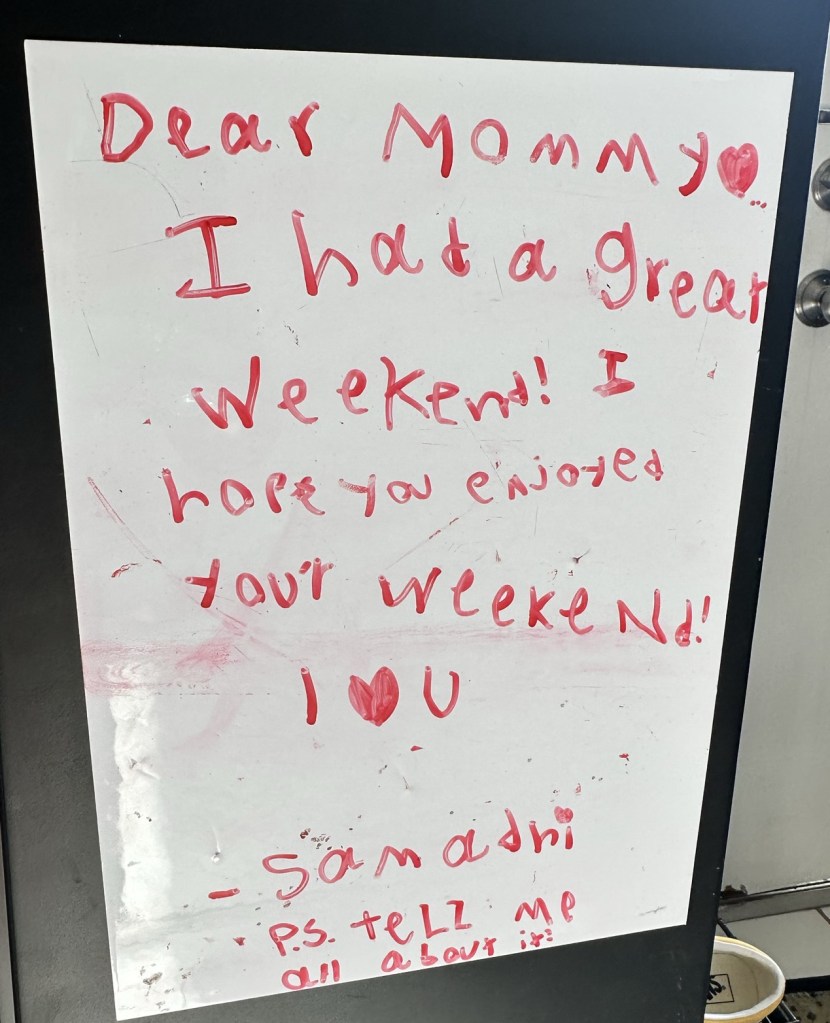 Dear Mommy♥...
I had a great
weekend! I
hope you enjoyed
your weekeNd!
I ♥ U
- Samadhi
P.S. tell me
all about it!